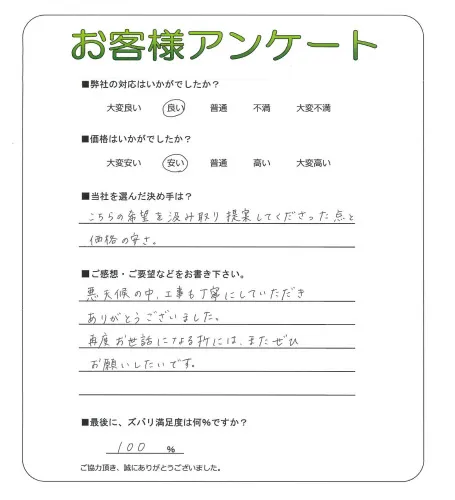 お客様アンケート
■弊社の対応はいかがでしたか？
大変良い 良い 普通 不満 大変不満
■価格はいかがでしたか？
大変安い 安い 普通 高い 大変高い
■当社を選んだ決め手は？
こちらの希望を汲み取り提案してくださった点と
価格の安さ。
■ご感想・ご要望などをお書き下さい。
悪天候の中、工事も丁寧にしていただき
ありがとうございました。
再度お世話になる折には、またぜひ
お願いしたいです。
■最後に、ズバリ満足度は何%ですか？
100 %
ご協力頂き、誠にありがとうございました。